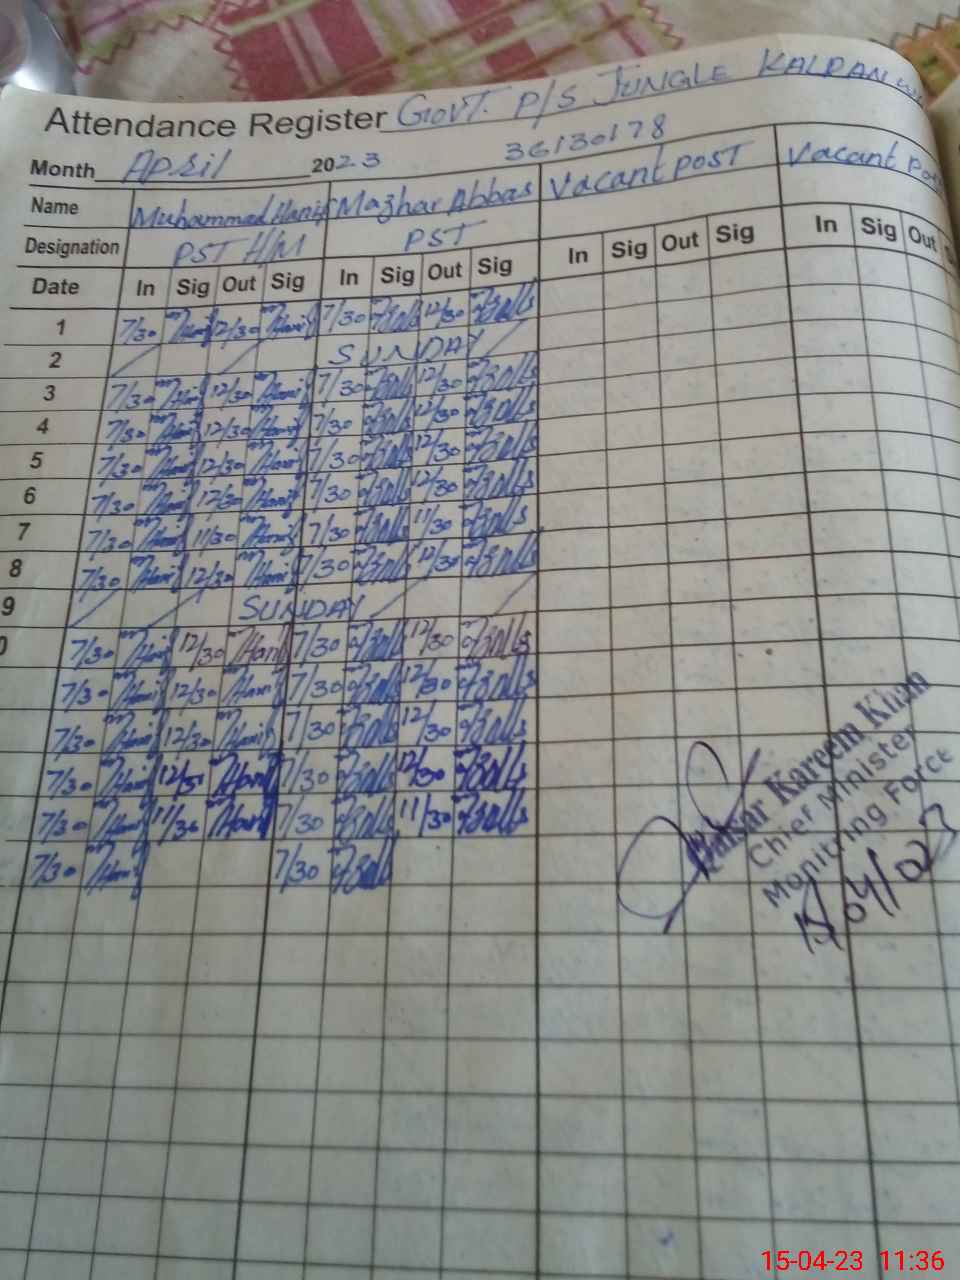 Attendance Register GOVT. P/S JUNGLE KALPAN
Month April 2023 36130178
Name Muhammad Hanif Mazhar Abbas Vacant post Vacant
Designation PST H/M PST
Date In Sig Out Sig In Sig Out Sig In Sig Out Sig In Sig Out
1 7/30 Hanif 12/30 Hanif 7/30 12/30
2 SUNDAY
3 7/30 Hanif 12/30 Hanif 7/30 12/30
4 7/30 Hanif 12/30 Hanif 7/30 12/30
5 7/30 Hanif 12/30 Hanif 7/30 12/30
6 7/30 Hanif 12/30 Hanif 7/30 12/30
7 7/30 Hanif 11/30 Hanif 7/30 11/30
8 7/30 Hanif 12/30 Hanif 7/30 12/30
9 SUNDAY
0 7/30 Hanif 12/30 Hanif 7/30 12/30
7/30 Hanif 12/30 Hanif 7/30 12/30
7/30 Hanif 12/30 Hanif 7/30 12/30
7/30 Hanif 12/30 Hanif 7/30 12/30
7/30 Hanif 11/30 Hanif 7/30 11/30
7/30 Hanif 7/30
Kareem Khan
Chief Minister
Monitring Force
15-04-23 11:36